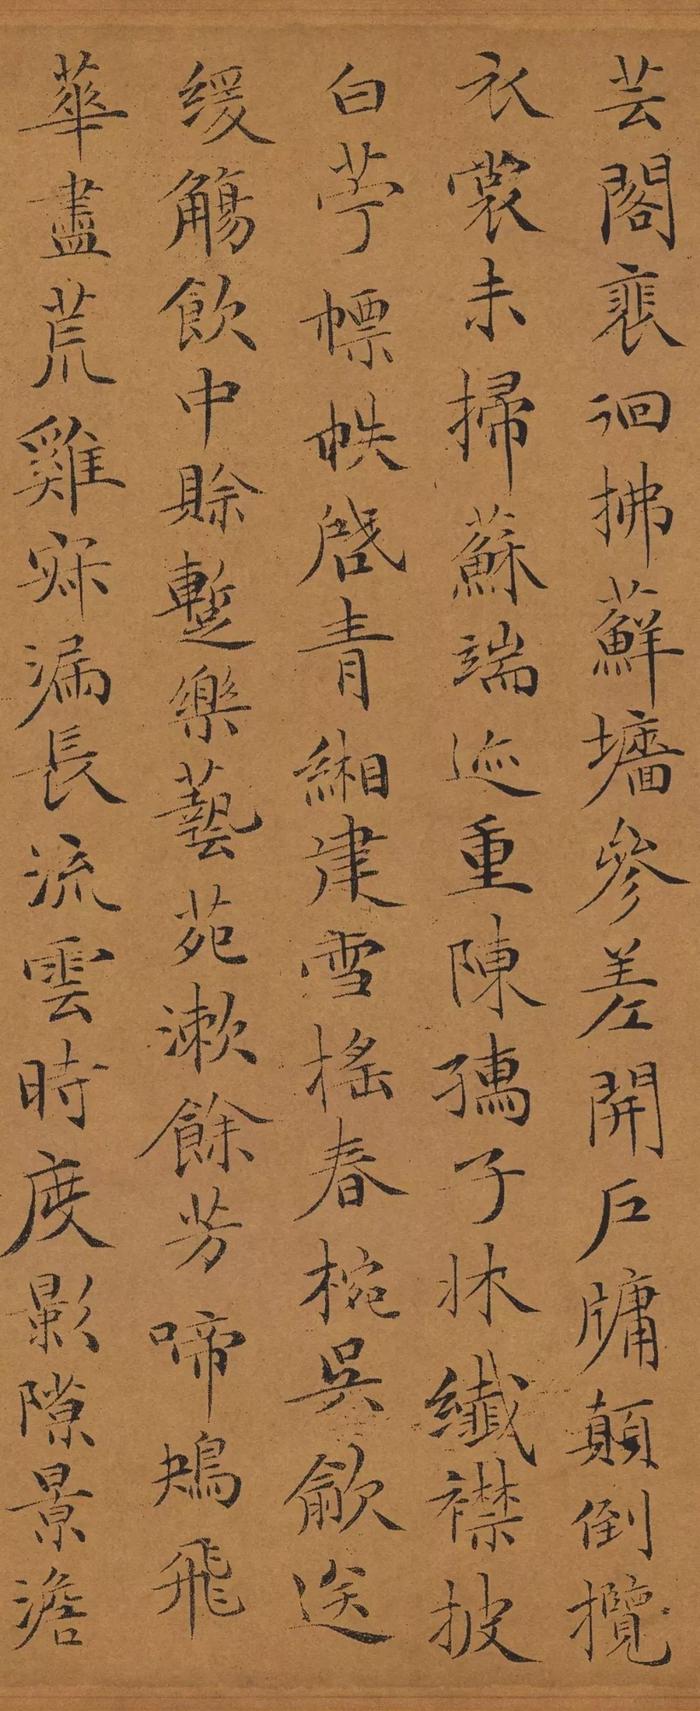 芸閣裵徊拂蘚墻參差開戶牗顛倒攬
衣裳未掃蘇端迹重陳孺子牀纖襟披
白苧幖帙啓青緗建雪榣春椀吳歈送
緩觴飲中賒蹔樂藝苑漱餘芳啼鴂飛
華盡荒雞寐漏長流雲時度影隙景澹